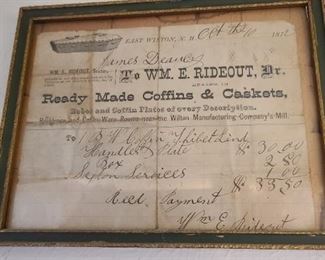 EAST WILTON, N. H. Oct the 10 1872
James
WM. E. RIDEOUT,
To WM. E. RIDEOUT, Dr.
DEALER IN
Ready Made Coffins & Caskets,
Robes and Coffin Plates of every Description.
Residence and Coffin Ware Rooms near the Wilton Manufacturing Company's Mill.
To 1 B. W. Coffin Thibet Lind
Handles & Plate $ 30.00
Box 2.50
Sexton Services 1.00
$ 33.50
Rec'd Payment
Wm E Rideout